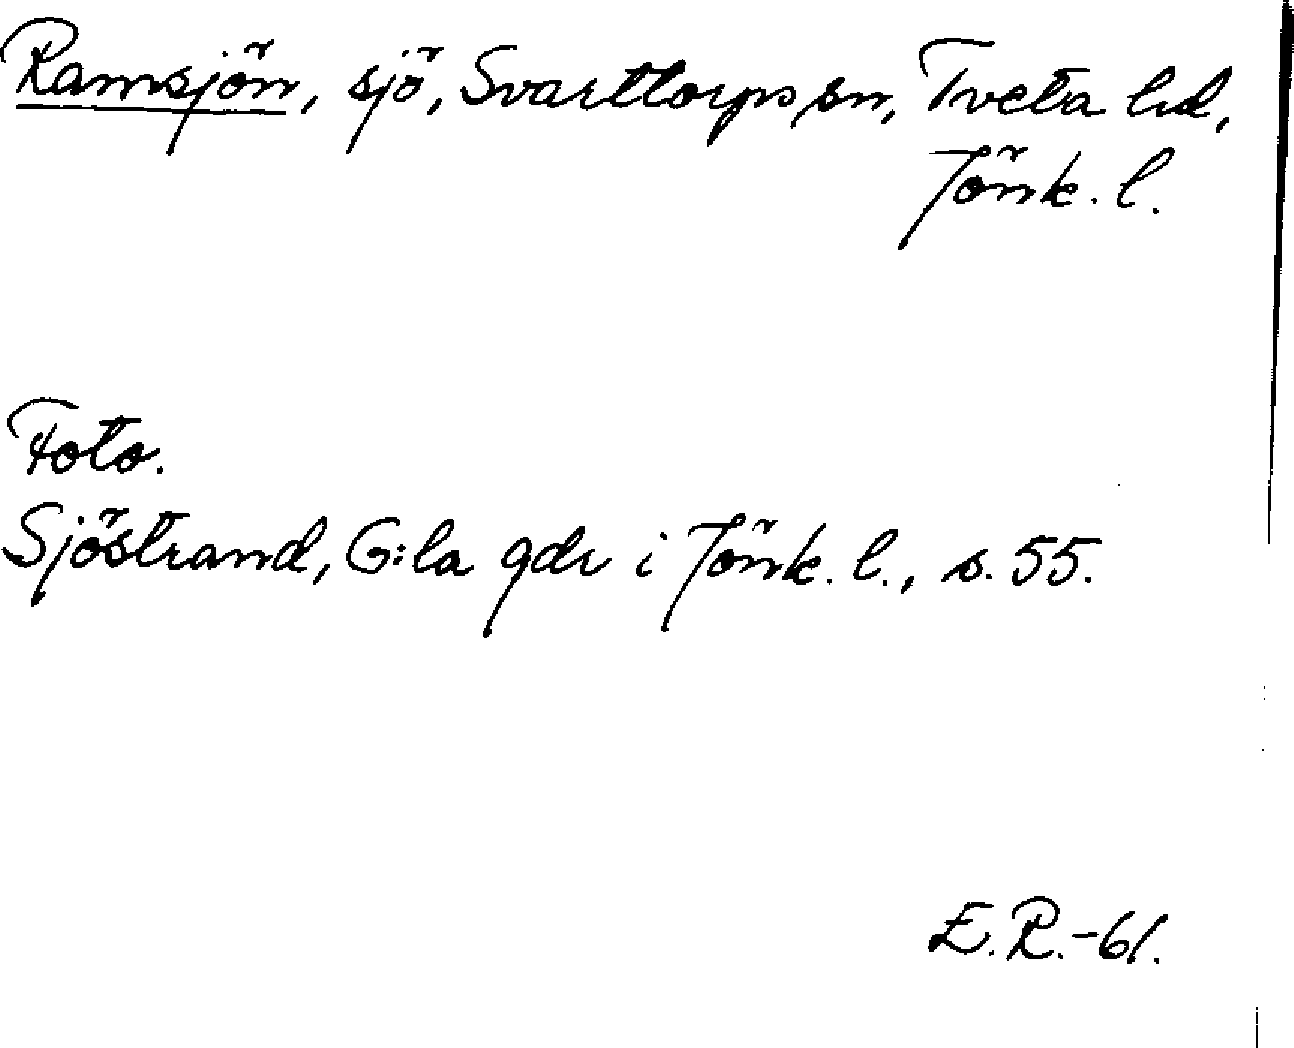 Ramsjön, sjö, Svarttorps sn, Tveta hd,
Jönk. l.
Foto.
Sjöstrand, G:la gdr i Jönk. l., s. 55.
E.R.-61.